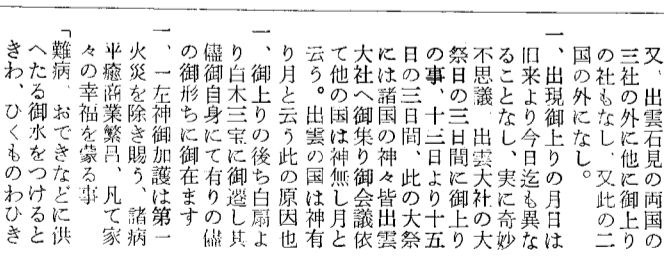 又、出雲石見の両国の
三社の外に他に御上り
の社もなし、又此の二
国の外になし。
一、出現御上りの月日は
旧来より今日迄も異な
ることなし、実に奇妙
不思議、出雲大社の大
祭日の三日間に御上り
の事、十三日より十五
日の三日間、此の大祭
には諸国の神々皆出雲
大社へ御集り御会議依
て他の国は神無し月と
云う。出雲の国は神有
り月と云う此の原因也
一、御上りの後ち白扇よ
り白木三宝に御遷し其
儘御自身にて有りの儘
の御形ちに御在ます
一、一左神御加護は第一
火災を除き賜う、諸病
平癒商業繁呂、凡て家
々の幸福を蒙る事
「難病、おできなどに供
へたる御水をつけると
きわ、ひくものわひき